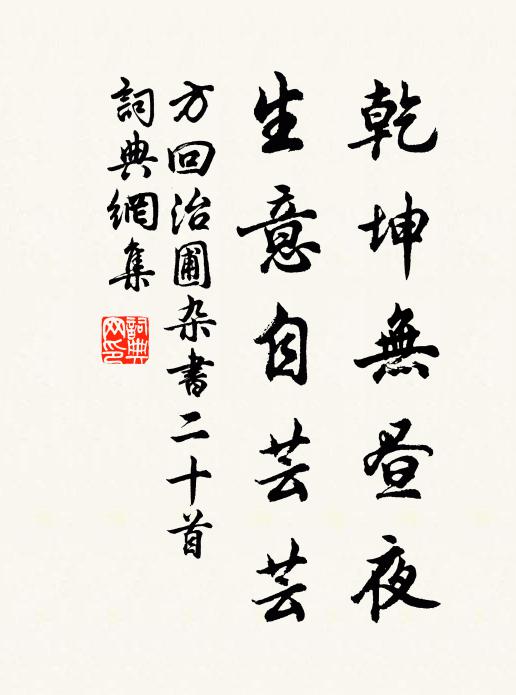 乾坤無昼夜
生意自芸芸
方回治圃杂書二十首
詞典網集
詞典网印